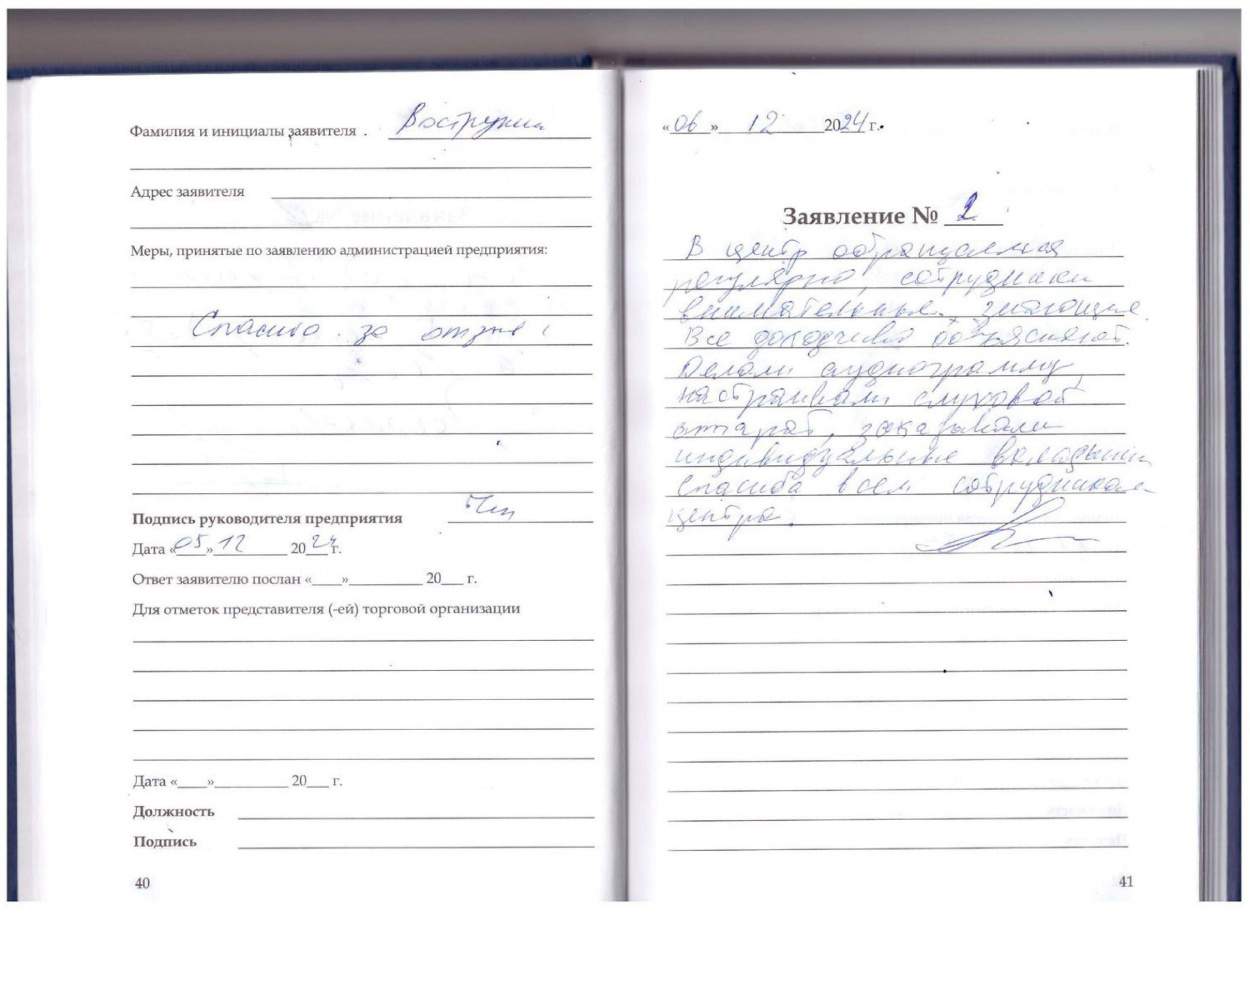 Фамилия и инициалы заявителя . Вострухин
Адрес заявителя
Меры, принятые по заявлению администрацией предприятия:
Спасибо за отзыв!
Подпись руководителя предприятия
Дата «05» 12 2024г.
Ответ заявителю послан «____»__________ 20___ г.
Для отметок представителя (-ей) торговой организации
Дата «____»__________ 20___ г.
Должность
Подпись
40
«06» 12 2024г.
Заявление № 2
В центр обращаемся
регулярно, сотрудники
внимательные, знающие.
Все доходчиво объясняют.
Делали аудиограмму,
настраивали слуховой
аппарат, заказывали
индивидуальные вкладыши
Спасибо всем сотрудникам
центра.
41